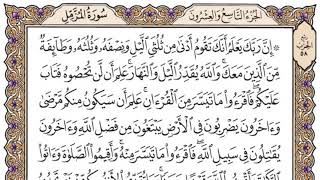 الجزء التاسع والعشرون
سورة المزمل
۞ إِنَّ رَبَّكَ يَعْلَمُ أَنَّكَ تَقُومُ أَدْنَىٰ مِن ثُلُثَيِ ٱلَّيْلِ وَنِصْفَهُۥ وَثُلُثَهُۥ وَطَآئِفَةٌ
مِّنَ ٱلَّذِينَ مَعَكَ ۚ وَٱللَّهُ يُقَدِّرُ ٱلَّيْلَ وَٱلنَّهَارَ ۚ عَلِمَ أَن لَّن تُحْصُوهُ فَتَابَ
عَلَيْكُمْ ۖ فَٱقْرَءُوا۟ مَا تَيَسَّرَ مِنَ ٱلْقُرْءَانِ ۚ عَلِمَ أَن سَيَكُونُ مِنكُم مَّرْضَىٰ
وَءَاخَرُونَ يَضْرِبُونَ فِى ٱلْأَرْضِ يَبْتَغُونَ مِن فَضْلِ ٱللَّهِ ۙ وَءَاخَرُونَ
يُقَٰتِلُونَ فِى سَبِيلِ ٱللَّهِ ۖ فَٱقْرَءُوا۟ مَا تَيَسَّرَ مِنْهُ ۚ وَأَقِيمُوا۟ ٱلصَّلَوٰةَ وَءَاتُوا۟